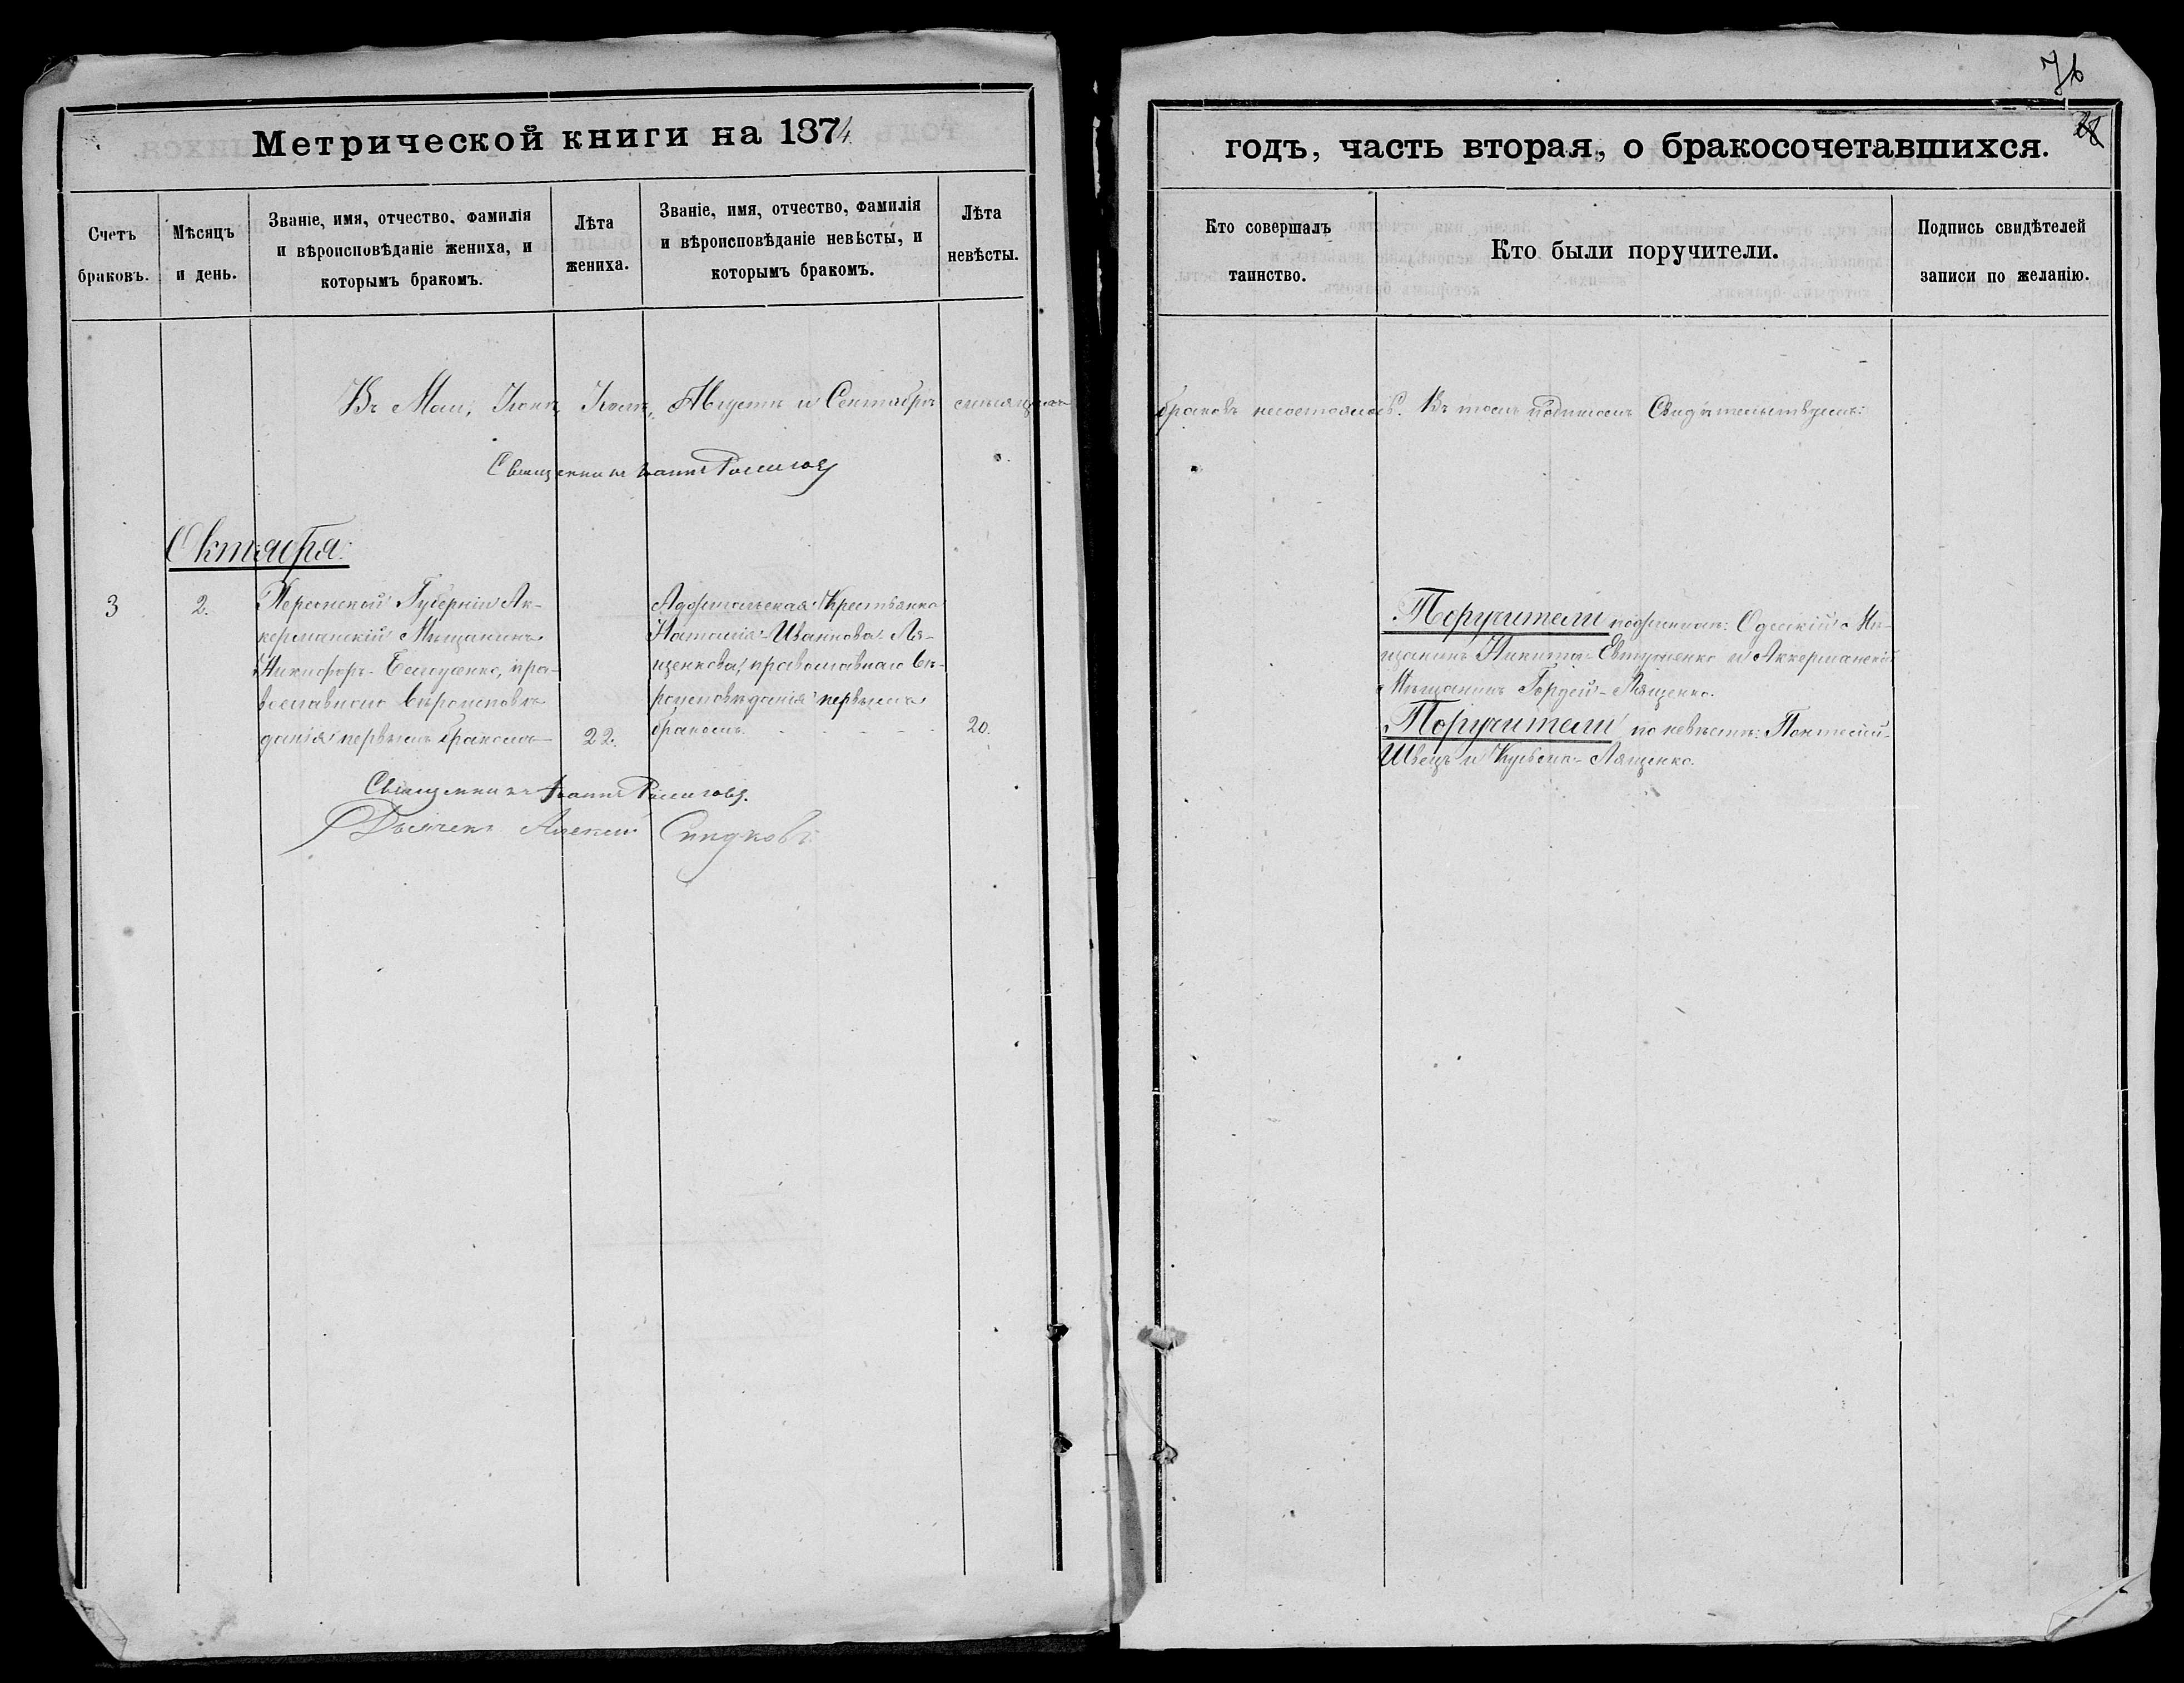 76
28
Метрической книги на 1874
годъ, часть вторая, о бракосочетавшихся.
Счетъ браковъ.
Мѣсяцъ и день.
Званіе, имя, отчество, фамилія и вѣроисповѣданіе жениха, и которымъ бракомъ.
Лѣта жениха.
Званіе, имя, отчество, фамилія и вѣроисповѣданіе невѣсты, и которымъ бракомъ.
Лѣта невѣсты.
Кто совершалъ таинство.
Кто были поручители.
Подпись свидѣтелей записи по желанію.
Въ Маи, Іюнѣ, Іюлѣ, Августѣ и Сентябрѣ мѣсяцахъ браковъ несостоялось. Въ томъ подписомъ Свидѣтельствуемъ:
Священникъ Іоаннъ
Октября
3
2.
Херсонской Губерніи Ак-
керманскій Мѣщанинъ
Никифоръ
православнаго вѣроисповѣ-
данія первымъ бракомъ
22.
Крестьянка
Наталія Иванова Ля-
щенкова, православнаго вѣ-
роисповѣданія первымъ
бракомъ.
20.
Поручители по женихѣ: Одесскій Мѣ-
щанинъ Никита Евтушенко и Аккерманскій
Мѣщанинъ Гордей Лященко.
Поручители по невѣстѣ: Пантелій
Швецъ и Кузьма Лященко.
Священникъ Іоаннъ
Дьячекъ Алексій